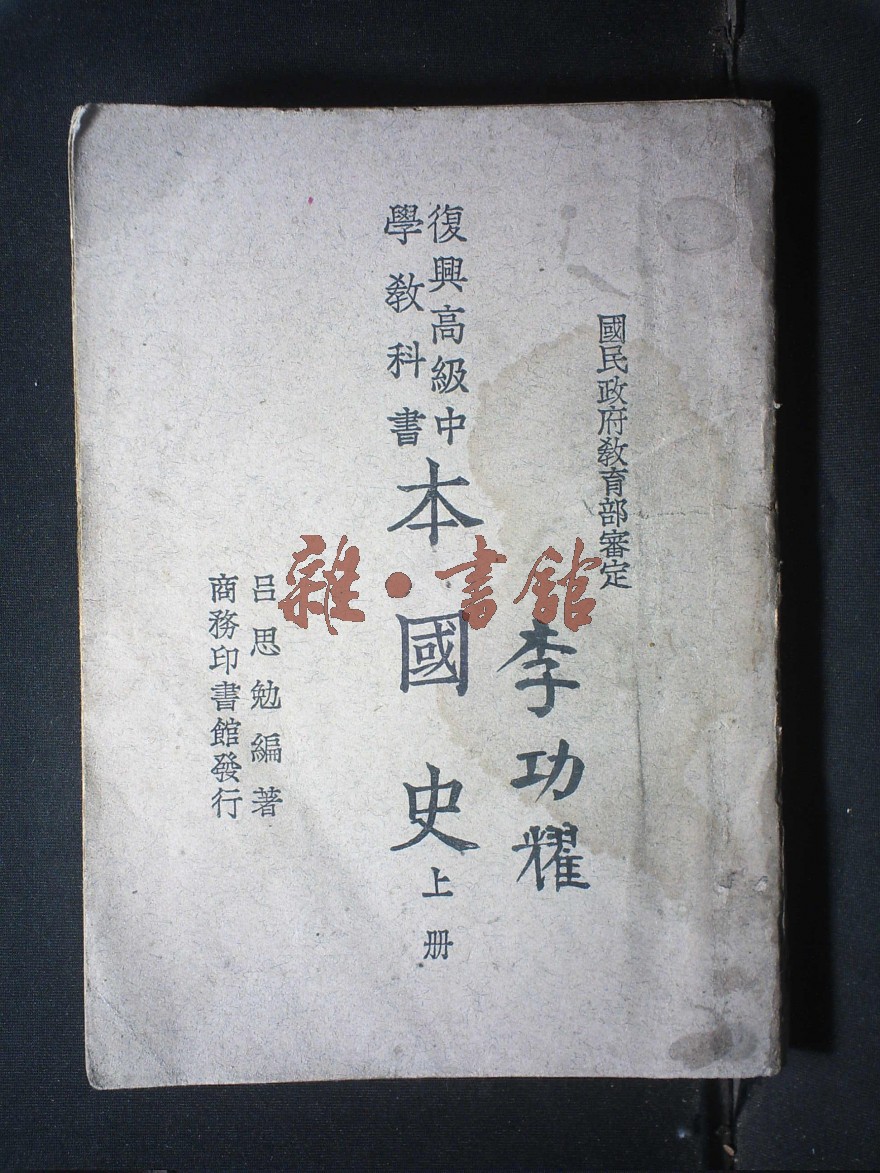 國民政府教育部審定
李功耀
復興高級中
學教科書
本國史上册
呂思勉編著
商務印書館發行
雜·書館